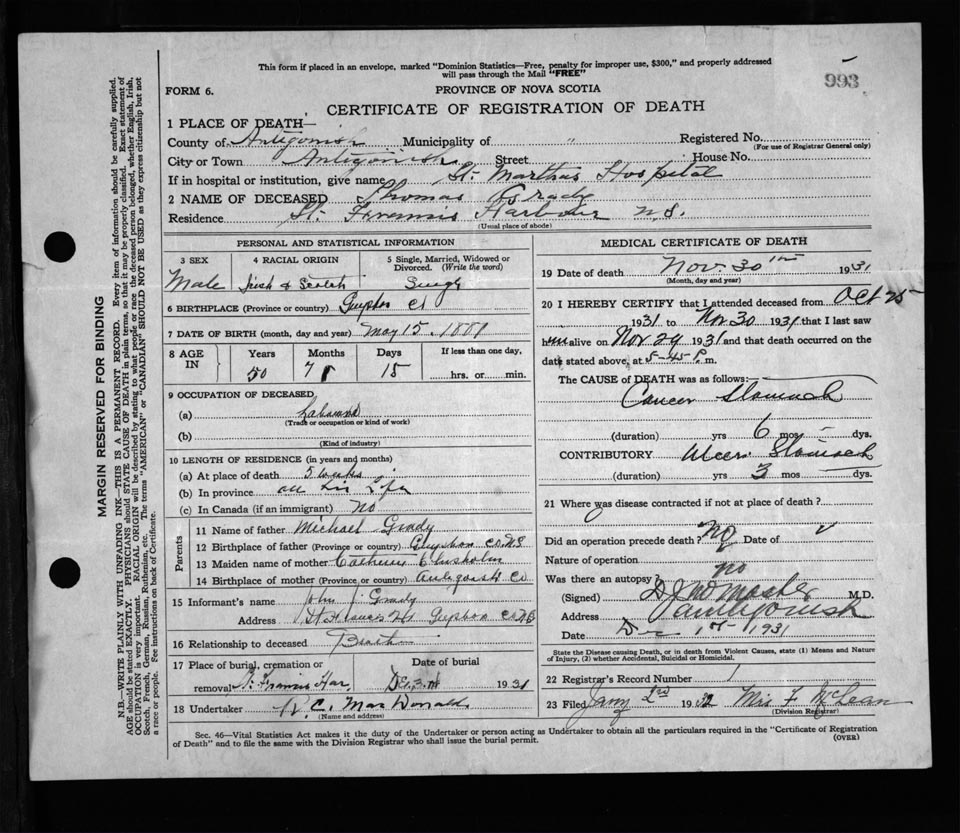 This form if placed in an envelope, marked "Dominion Statistics—Free, penalty for improper use, $300," and properly addressed
will pass through the Mail "FREE"
993
FORM 6.
PROVINCE OF NOVA SCOTIA
CERTIFICATE OF REGISTRATION OF DEATH
1 PLACE OF DEATH—
County of Antigonish Municipality of " Registered No.
(For use of Registrar General only)
City or Town Antigonish Street House No.
If in hospital or institution, give name St. Marthas Hospital
2 NAME OF DECEASED Thomas Grady
Residence St. Francis Harbour N.S.
(Usual place of abode)
MARGIN RESERVED FOR BINDING
N.B.—WRITE PLAINLY WITH UNFADING INK—THIS IS A PERMANENT RECORD. Every item of information should be carefully supplied.
AGE should be stated EXACTLY. PHYSICIANS should STATE CAUSE OF DEATH in plain terms, so that it may be properly classified. Exact statement of
OCCUPATION is very important. RACIAL ORIGIN will be described by stating to what people or race the deceased person belonged, whether English, Irish,
Scotch, French, German, Russian, Ruthenian, etc. The terms "AMERICAN" or "CANADIAN" SHOULD NOT BE USED as they express citizenship but not
a race or people. See instructions on back of Certificate.
PERSONAL AND STATISTICAL INFORMATION
3 SEX
4 RACIAL ORIGIN
5 Single, Married, Widowed or
Divorced. (Write the word)
Male Irish & Scotch Single
6 BIRTHPLACE (Province or country) Guysboro Co
7 DATE OF BIRTH (month, day and year) May 15. 1881
8 AGE
IN
Years Months Days If less than one day,
50 7 15 hrs. or min.
9 OCCUPATION OF DECEASED
(a) Labourer
(Trade or occupation or kind of work)
(b)
(Kind of industry)
10 LENGTH OF RESIDENCE (in years and months)
(a) At place of death 5 weeks
(b) In province all his Life
(c) In Canada (if an immigrant) No
Parents
11 Name of father Michael Grady
12 Birthplace of father (Province or country) Guysboro Co NS
13 Maiden name of mother Catherine Chisholm
14 Birthplace of mother (Province or country) Antigonish Co
15 Informant's name John J. Grady
Address St Frances Hr Guysboro Co NS
16 Relationship to deceased Brother
17 Place of burial, cremation or
removal St. Francis Har.
Date of burial
Dec. 3rd 1931
18 Undertaker MacDonald
(Name and address)
MEDICAL CERTIFICATE OF DEATH
19 Date of death Nov. 30th 1931
(Month, day and year)
20 I HEREBY CERTIFY that I attended deceased from Oct 25
1931 to Nov 30 1931 that I last saw
him alive on Nov 29 1931 and that death occurred on the
date stated above, at 5-45 P.m.
The CAUSE of DEATH was as follows:—
Cancer Stomach
(duration) yrs 6 mos - dys.
CONTRIBUTORY Ulcer Stomach
(duration) yrs 3 mos dys.
21 Where was disease contracted if not at place of death?
Did an operation precede death? No Date of
Nature of operation
Was there an autopsy? no
(Signed) M.D.
Address Antigonish
Date Dec 1st 1931
State the Disease causing Death, or in death from Violent Causes, state (1) Means and Nature
of Injury, (2) whether Accidental, Suicidal or Homicidal.
22 Registrar's Record Number 1
23 Filed Jany 2nd 1932 Mrs F McLean
(Division Registrar)
Sec. 46—Vital Statistics Act makes it the duty of the Undertaker or person acting as Undertaker to obtain all the particulars required in the "Certificate of Registration
of Death" and to file the same with the Division Registrar who shall issue the burial permit.
(OVER)